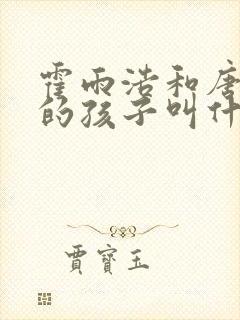 霍雨浩和唐
的孩子叫什
賈寶玉